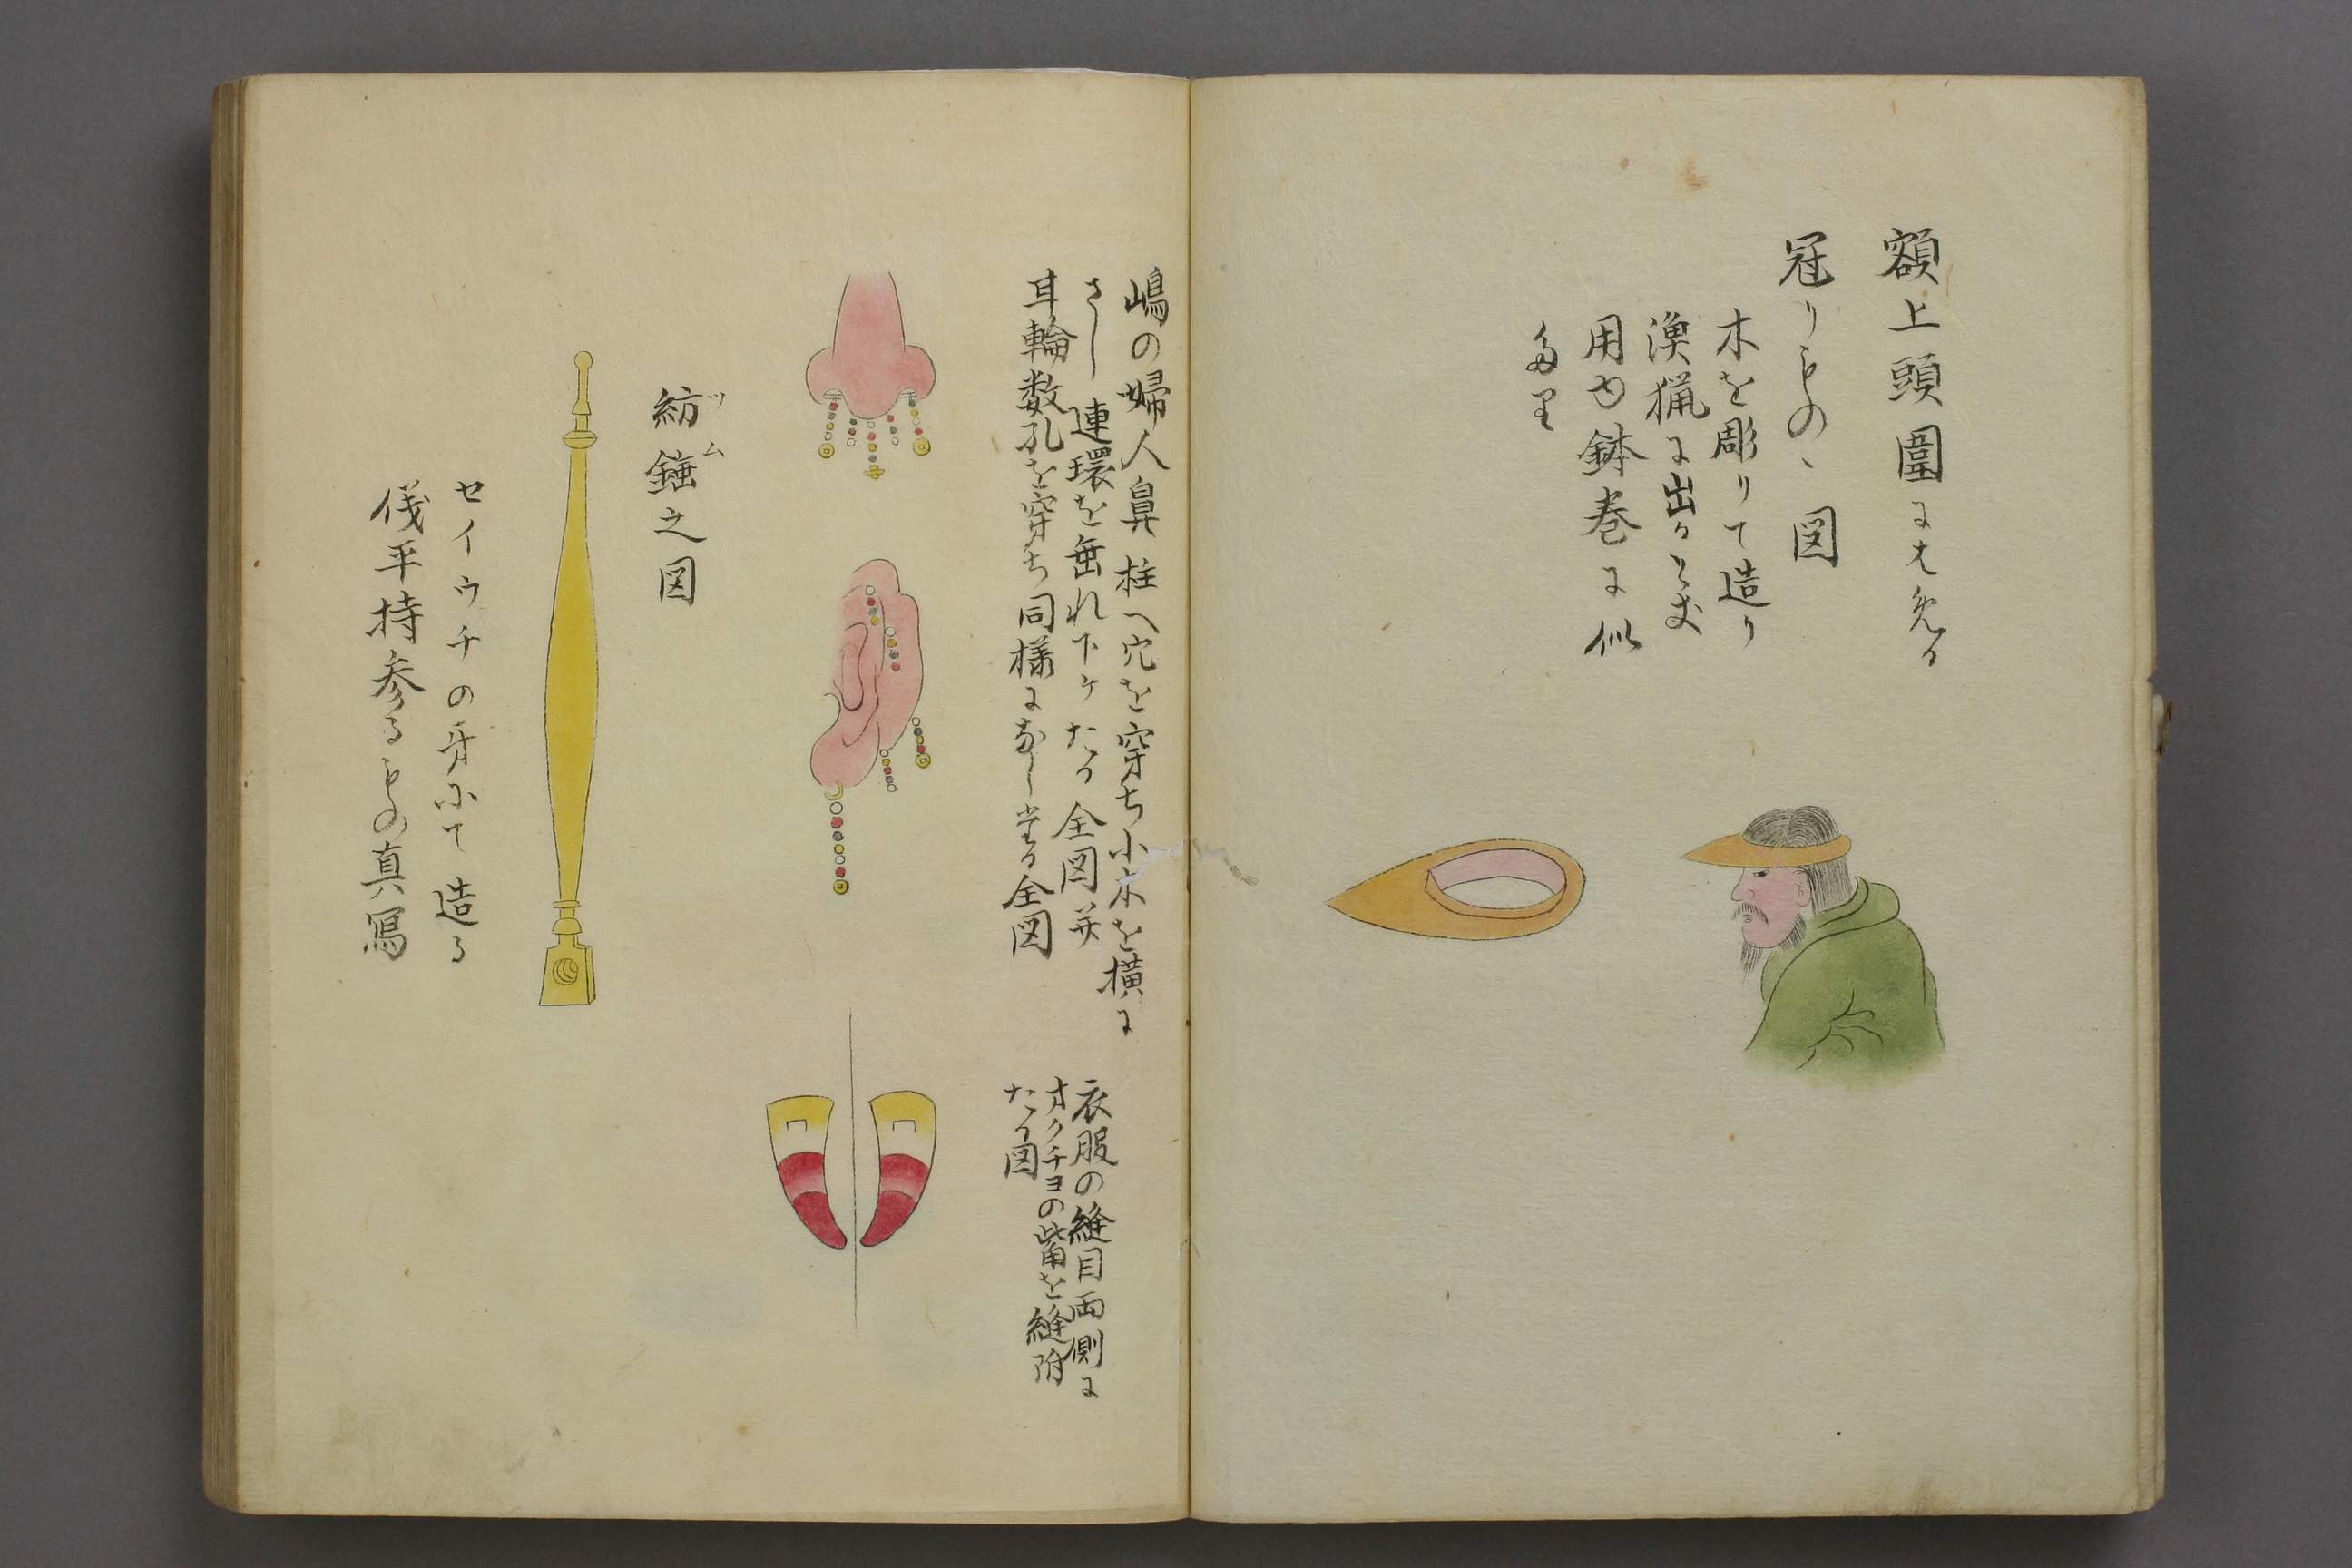 額上頭圍にはめる
冠りもの、図
木を彫りて造り
漁猟に出るとき
用ゆ鉢巻に似
多里
嶋の婦人鼻柱へ穴を穿ち小木を横に
さし連環を垂れ下ケたる全図并
耳輪数孔を穿ち同様になしたる全図
衣服の縫目両側に
オクチヨの觜を縫附
たる図
紡錘之図
ツム
セイウチの牙にて造る
儀平持参るもの真寫